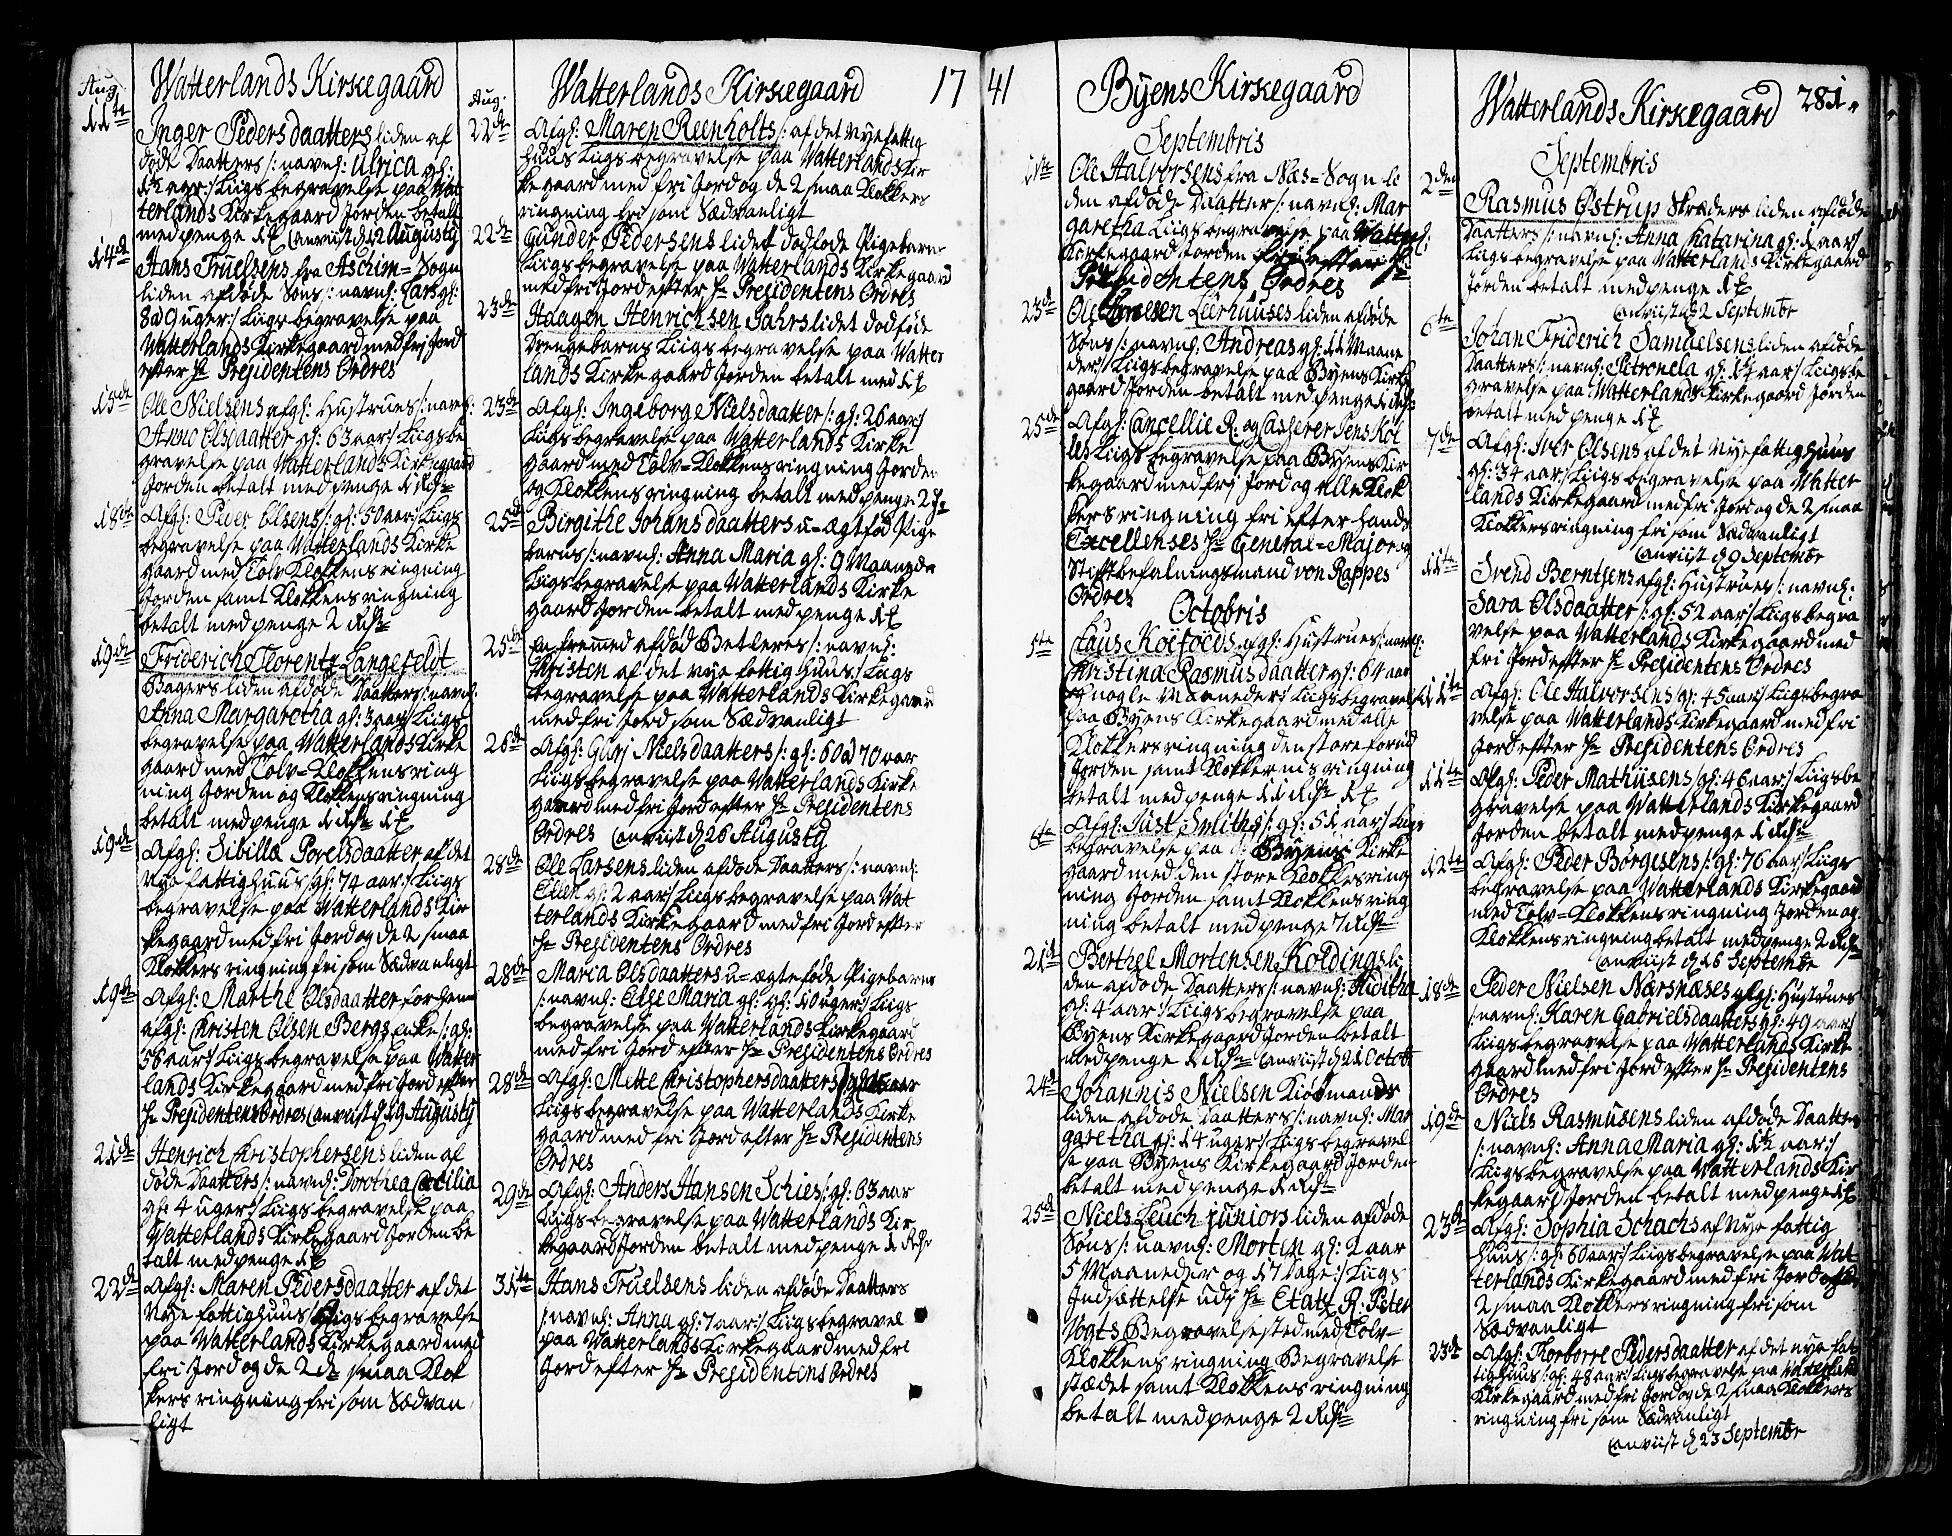 Aug:
Watterlands Kirkegaard
11te Inger Pedersdaatters liden af
døde Daatters/: navnl: Ulrica gl:
1½ aar:/ Liigs begravelse paa Wat
terlands Kirkegaard Jorden betalt
med penge
Anviist d 12 Augusty
14de Hans Truelsens fra Aschim=Sogn
liden afdøde Søns/: navnl: Lars gl:
8 a 9 uger:/ Liigs begravelse paa
Watterlands Kirkegaard med fri Jord
efter Hr Presidentens Ordres
15de Ole Nielsens afgl: Hustrues/: navnl:
Anne Olsdaatter gl: 63 aar:/ Liigs be
gravelse paa Watterlands Kirkegaard
Jorden betalt med penge 1 Rdlr
18de Afgl: Peder Olsens/: gl: 50 aar:/ Liigs
begravelse paa Watterlands Kirke
gaard med Tolv Klokkens ringning
Jorden samt Klokkens ringning
betalt med penge 2 Rdlr
19de Friderich Florentz Langefeldt
Bagers liden afdøde Daatters/: navnl:
Anna Margaretha gl: 3 aar:/ Liigs
begravelse paa Watterlands Kirke
gaard med Tolv=Klokkens ring
ning Jorden og Klokkens ringning
betalt med penge 1 Rdlr
19de Afgl: Sibilla Povelsdaatter af det
Nye fattighuus/: gl: 74 aar:/ Liigs
begravelse paa Watterlands Kir
kegaard med fri Jord og de 2 smaa
Klokkers ringning fri som Sædvanligt
19de Afgl: Marthe Olsdaatter forhen
afgl: Kristen Olsen Bergs enke/: gl:
56 aar:/ Liigs begravelse paa Watter
lands Kirkegaard med fri Jord efter
Hr Presidentens Ordres Anviist d 19 Augusty
21de Henrich Kristophersens liden af
døde Daatters/: navnl: Dorothea Cecilia
gl: 4 uger:/ Liigs begravelse paa
Watterlands Kirkegaard Jorden be
talt med penge
22de Afgl: Maren Pedersdaatter af det
Nye fattighuus/: Liigs begravelse
paa Watterlands Kirkegaard med
fri Jord og de 2de smaa Klok
kers ringning fri som Sædvan
ligt
Aug:
Watterlands Kirkegaard 17
22de Afgl: Maren Reenholts/: af det Nye fattig
huus Liigs begravelse paa Watterlands Kir
kegaard med fri Jord og de 2 smaa Klokkers
ringning fri som Sædvanligt
22de Gunder Pedersens lidet dødføde Pigebarns
Liigs begravelse paa Watterlands Kirkegaard
med fri Jord efter Hr Presidentens Ordres
23de Haagen Henrichsen Jahrs lidet dødføde
Drengebarns Liigs begravelse paa Watter
lands Kirkegaard Jorden betalt med
23de Afgl: Ingeborge Nielsdaatter/: gl: 26 aar:/
Liigs begravelse paa Watterlands Kirke
gaard med Tolv=Klokkens ringning Jorden
og Klokkens ringning betalt med penge 2
25de Birgithe Johansdaatters u=ægtfød Pige
barns/: navnl: Anna Maria gl: 9 Maaneder
Liigs begravelse paa Watterlands Kirke
gaard Jorden betalt med penge
25de En fremmed afdød Betleres/: navnl:
Kristen af det nye fattighuus:/ Liigs
begravelse paa Watterlands Kirkegaard
med fri Jord som Sædvanligt
26de Afgl: Gurj Nielsdaatters/: gl: 60 a 70 aar
Liigs begravelse paa Watterlands Kirke
gaard med fri Jord efter Hr Presidentens
Ordres Anviist d 26 Augusty
28de Ole Larsens liden afdøde Daatters/: navnl:
Ellen gl: 2 aar:/ Liigs begravelse paa Wat
terlands Kirkegaard med fri Jord efter
Hr Presidentens Ordres
28de Maria Olsdaatters u=ægteføde Pigebarns
/: navnl: Else Maria gl: gl: 10 uger:/ Liigs
begravelse paa Watterlands Kirkegaard
med fri Jord efter Hr Presidentens Ordres
28de Afgl: Mette Kristophersdaatters
Liigs begravelse paa Watterlands Kirke
gaard med fri Jord efter Hr Presidentens
Ordres
29de Afgl: Anders Hansen Schies/: gl: 63 aar
Liigs begravelse paa Watterlands Kir
kegaard Jorden betalt med penge 1 Rdlr
31te Hans Truelsens liden afdøde Daatters
/: navnl: Anna gl: 7 aar:/ Liigs begravel
paa Watterlands Kirkegaard med fri
Jord efter Hr Presidentens Ordres
41 Byens Kirkegaard
Septembris
1te Ole Halvorsens fra Næs=Sogn li
den afdøde Daatter/: navnl: Mar
garetha Liigs begravelse paa Watterl:
Kirkegaard Jorden fri efter Hr
Presidentens Ordres
23de Ole Leerhuuses liden afdøde
Søns/: navnl: Andreas gl: 11 Maane
der:/ Liigs begravelse paa Byens Kirke
gaard Jorden betalt med penge 1 Rdlr
25de Afgl: Cancellie R. og Casserer Jens Kol
Liigs begravelse paa Byens Kir
kegaard med fri Jord og Alle Klok
kers ringning fri efter hands
Excellenses Hr General=Major og
Stiftbefalningsmand von Rappes
Ordres
Octobris
5te Claus Koefoeds afgl: Hustrues/: navnl:
Kristina Rasmusdaatter gl: 64 aar
og nogle Maaneder:/ Liigs begravelse
paa Byens Kirkegaard med alle
Klokkers ringning den store forud
Jorden samt Klokkernes ringning
betalt med penge 11 Rdlr
6te Afgl: Just Smiths/: gl: 51 aar:/ Liigs
begravelse paa Byens Kirke
gaard med den store Klokkes ring
ning Jorden samt Klokkens ring
ning betalt med penge 7 Rdlr
21de Berthel Mortensen Koldings li
den afdøde Daatters/: navnl:
gl: 4 aar:/ Liigs begravelse paa
Byens Kirkegaard Jorden betalt
med penge 1 Rdlr Anviist d 21 Octobr
24de Johannis Nielsen Kiøbmands
liden afdøde Daatters/: navnl: Mar
garetha gl: 14 uger:/ Liigs begravel
se paa Byens Kirkegaard Jorden
betalt med penge 1 Rdlr
25de Niels Leuch juniors liden afdøde
Søns/: navnl: Morten gl: 2 aar
5 Maaneder og 17 dage:/ Liigs
Indsættelse udj Hr Etatz R. Peter
Vogts Begravelse sted med Tolv=
Klokkens ringning Begravelse
stædet samt Klokkens ringning
betalt med penge 2 Rdlr
Watterlands Kirkegaard 281.
Septembris
2den Rasmus Østrup Skræders liden afdøde
Daatters/: navnl: Anna Catarina gl: 1 aar:/
Liigs begravelse paa Watterlands Kirkegaard
Jorden betalt med penge
Anviist d 2 Septembr
6te Johan Friderich Samuelsens liden afdøde
Daatters/: navnl: Petronela gl: 1¼ aar:/ Liigs be
gravelse paa Watterlands Kirkegaard Jorden
betalt med penge
7de Afgl: Iver Olsens af det Nye fattighuus
gl: 34 aar:/ Liigs begravelse paa Watter
lands Kirkegaard med fri Jord og de 2 smaa
Klokkers ringning fri som Sædvanligt
Anviist d 9 Septembr
11te Svend Berntsens afgl: Hustrues/: navnl:
Sara Olsdaatter/: gl: 52 aar:/ Liigs begra
velse paa Watterlands Kirkegaard med
fri Jord efter Hr Presidentens Ordres
11te Afgl: Ole Halvorsens gl: 45 aar:/ Liigs begra
velse paa Watterlands Kirkegaard med fri
Jord efter Hr Presidentens Ordres
11te Afgl: Peder Mathiisens/: gl: 46 aar:/ Liigs be
gravelse paa Watterlands Kirkegaard
Jorden betalt med penge 1 Rdlr
12te Afgl: Peder Børgesens/: gl: 76 aar:/ Liigs
begravelse paa Watterlands Kirkegaard
med Tolv=Klokkens ringning Jorden og
Klokkens ringning betalt med penge 2 Rdlr
Anviist d 16 Septembr
18de Peder Nielsen Nærsnæses afgl: Hustrues
/: navnl: Karen Gabrielsdaatters gl: 49 aar:/
Liigs begravelse paa Watterlands Kirke
gaard med fri Jord efter Hr Presidentens
Ordres
19de Niels Rasmusens liden afdøde Daatters
/: navnl: Anna Maria gl: 1½ aar:/
Liigs begravelse paa Watterlands Kir
kegaard Jorden betalt med penge
23de Afgl: Sophia Schachs af Nye fattig
huus/: gl: 60 aar:/ Liigs begravelse paa Wat
terlands Kirkegaard med fri Jord og de
2 smaa Klokkers ringning fri som
Sædvanligt
23de Afgl: Torborre Pedersdaatter af det nye fat
tighuus/: gl: 48 aar:/ Liigs begravelse paa Watterlands
Kirkegaard med fri Jord og de 2 smaa Klokkers
ringning fri som Sædvanligt
Anviist d 23 Septembr